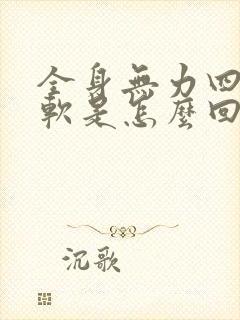 全身無力四
軟是怎麼回
沉歌